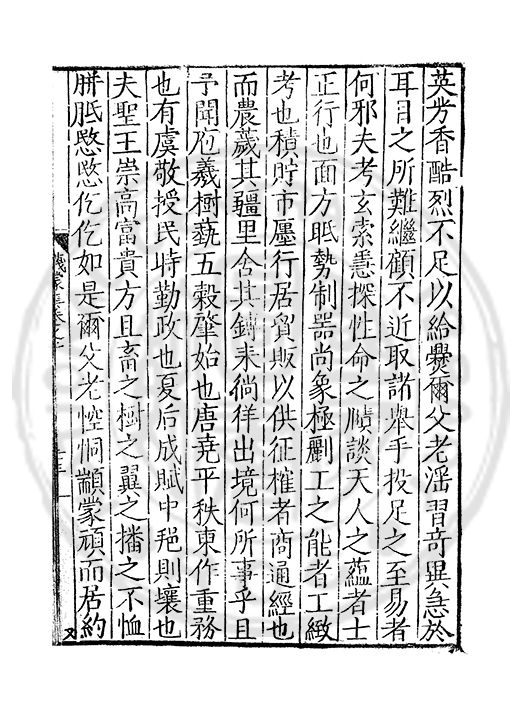 英芳香酷烈不足以給爨爾父老滛習奇異急於
耳目之所難繼顧不近取諸舉手投足之至易者
何邪夫考玄索慐探性命之賾談天人之蘊者士
正行也面方眡勢制器尚象極劘工之能者工緻
考也積貯市廛行居貿販以供征榷者商通經也
而農薉其疆里舍其鎛耒徜徉出境何所事乎且
予聞庖羲樹蓺五榖肇始也唐堯平秩東作重務
也有虞敬授民時勤政也夏后成賦中𥟖則壤也
夫聖王崇高富貴方且畜之樹之翼之播之不恤
胼胝愍愍仡仡如是爾父老悾恫顓蒙頑而居約